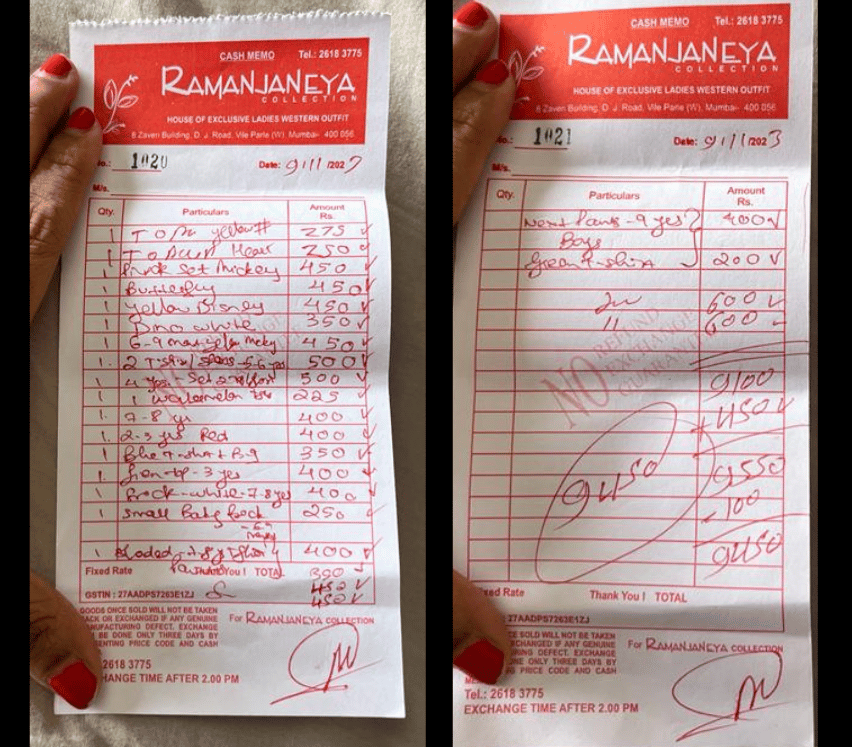 CASH MEMO Tel.: 2618 3775
RAMANJANEYA
COLLECTION
HOUSE OF EXCLUSIVE LADIES WESTERN OUTFIT
8 Zaven Building, D. J. Road, Vile Parle (W), Mumbai- 400 056
No.: 1020 Date: 9/1/2023
M/s.
Qty. Particulars Amount Rs.
1 yellow 275
1 250
1 Frock set mickey 450
1 Butterfly 450
1 yellow Disney 450
1 white 350
1 6-9 450
1. 2 5-6 yrs 500
1 4 yrs set 500
1 1 225
1. 7-8 yrs 400
1. 2-3 yrs Red 400
1 Blue t-shirt 350
1. 3 yrs 400
1 Frock-white-7-8 yrs 400
1 Small Baby frock 250
1 400
Fixed Rate Thank You ! TOTAL 390
450
GSTIN : 27AADPS7263E1ZJ 450
GOODS ONCE SOLD WILL NOT BE TAKEN
BACK OR EXCHANGED IF ANY GENUINE
MANUFACTURING DEFECT. EXCHANGE
BE DONE ONLY THREE DAYS BY
PRICE CODE AND CASH
For RAMANJANEYA COLLECTION
2618 3775
EXCHANGE TIME AFTER 2.00 PM
CASH MEMO Tel.: 2618 3775
RAMANJANEYA
COLLECTION
HOUSE OF EXCLUSIVE LADIES WESTERN OUTFIT
8 Zaven Building, D. J. Road, Vile Parle (W), Mumbai- 400 056
No.: 1021 Date: 9/1/2023
M/s.
Qty. Particulars Amount Rs.
Pants - 9 yrs 400
Boys
Green t-shirt 200
600
11 600
NO REFUND
EXCHANGE
GUARANTEE
9100
+450
9450 9550
-100
9450
Fixed Rate Thank You ! TOTAL
27AADPS7263E1ZJ
ONCE SOLD WILL NOT BE TAKEN
EXCHANGED IF ANY GENUINE
DEFECT. EXCHANGE
ONE ONLY THREE DAYS BY
PRICE CODE AND CASH
For RAMANJANEYA COLLECTION
Tel.: 2618 3775
EXCHANGE TIME AFTER 2.00 PM